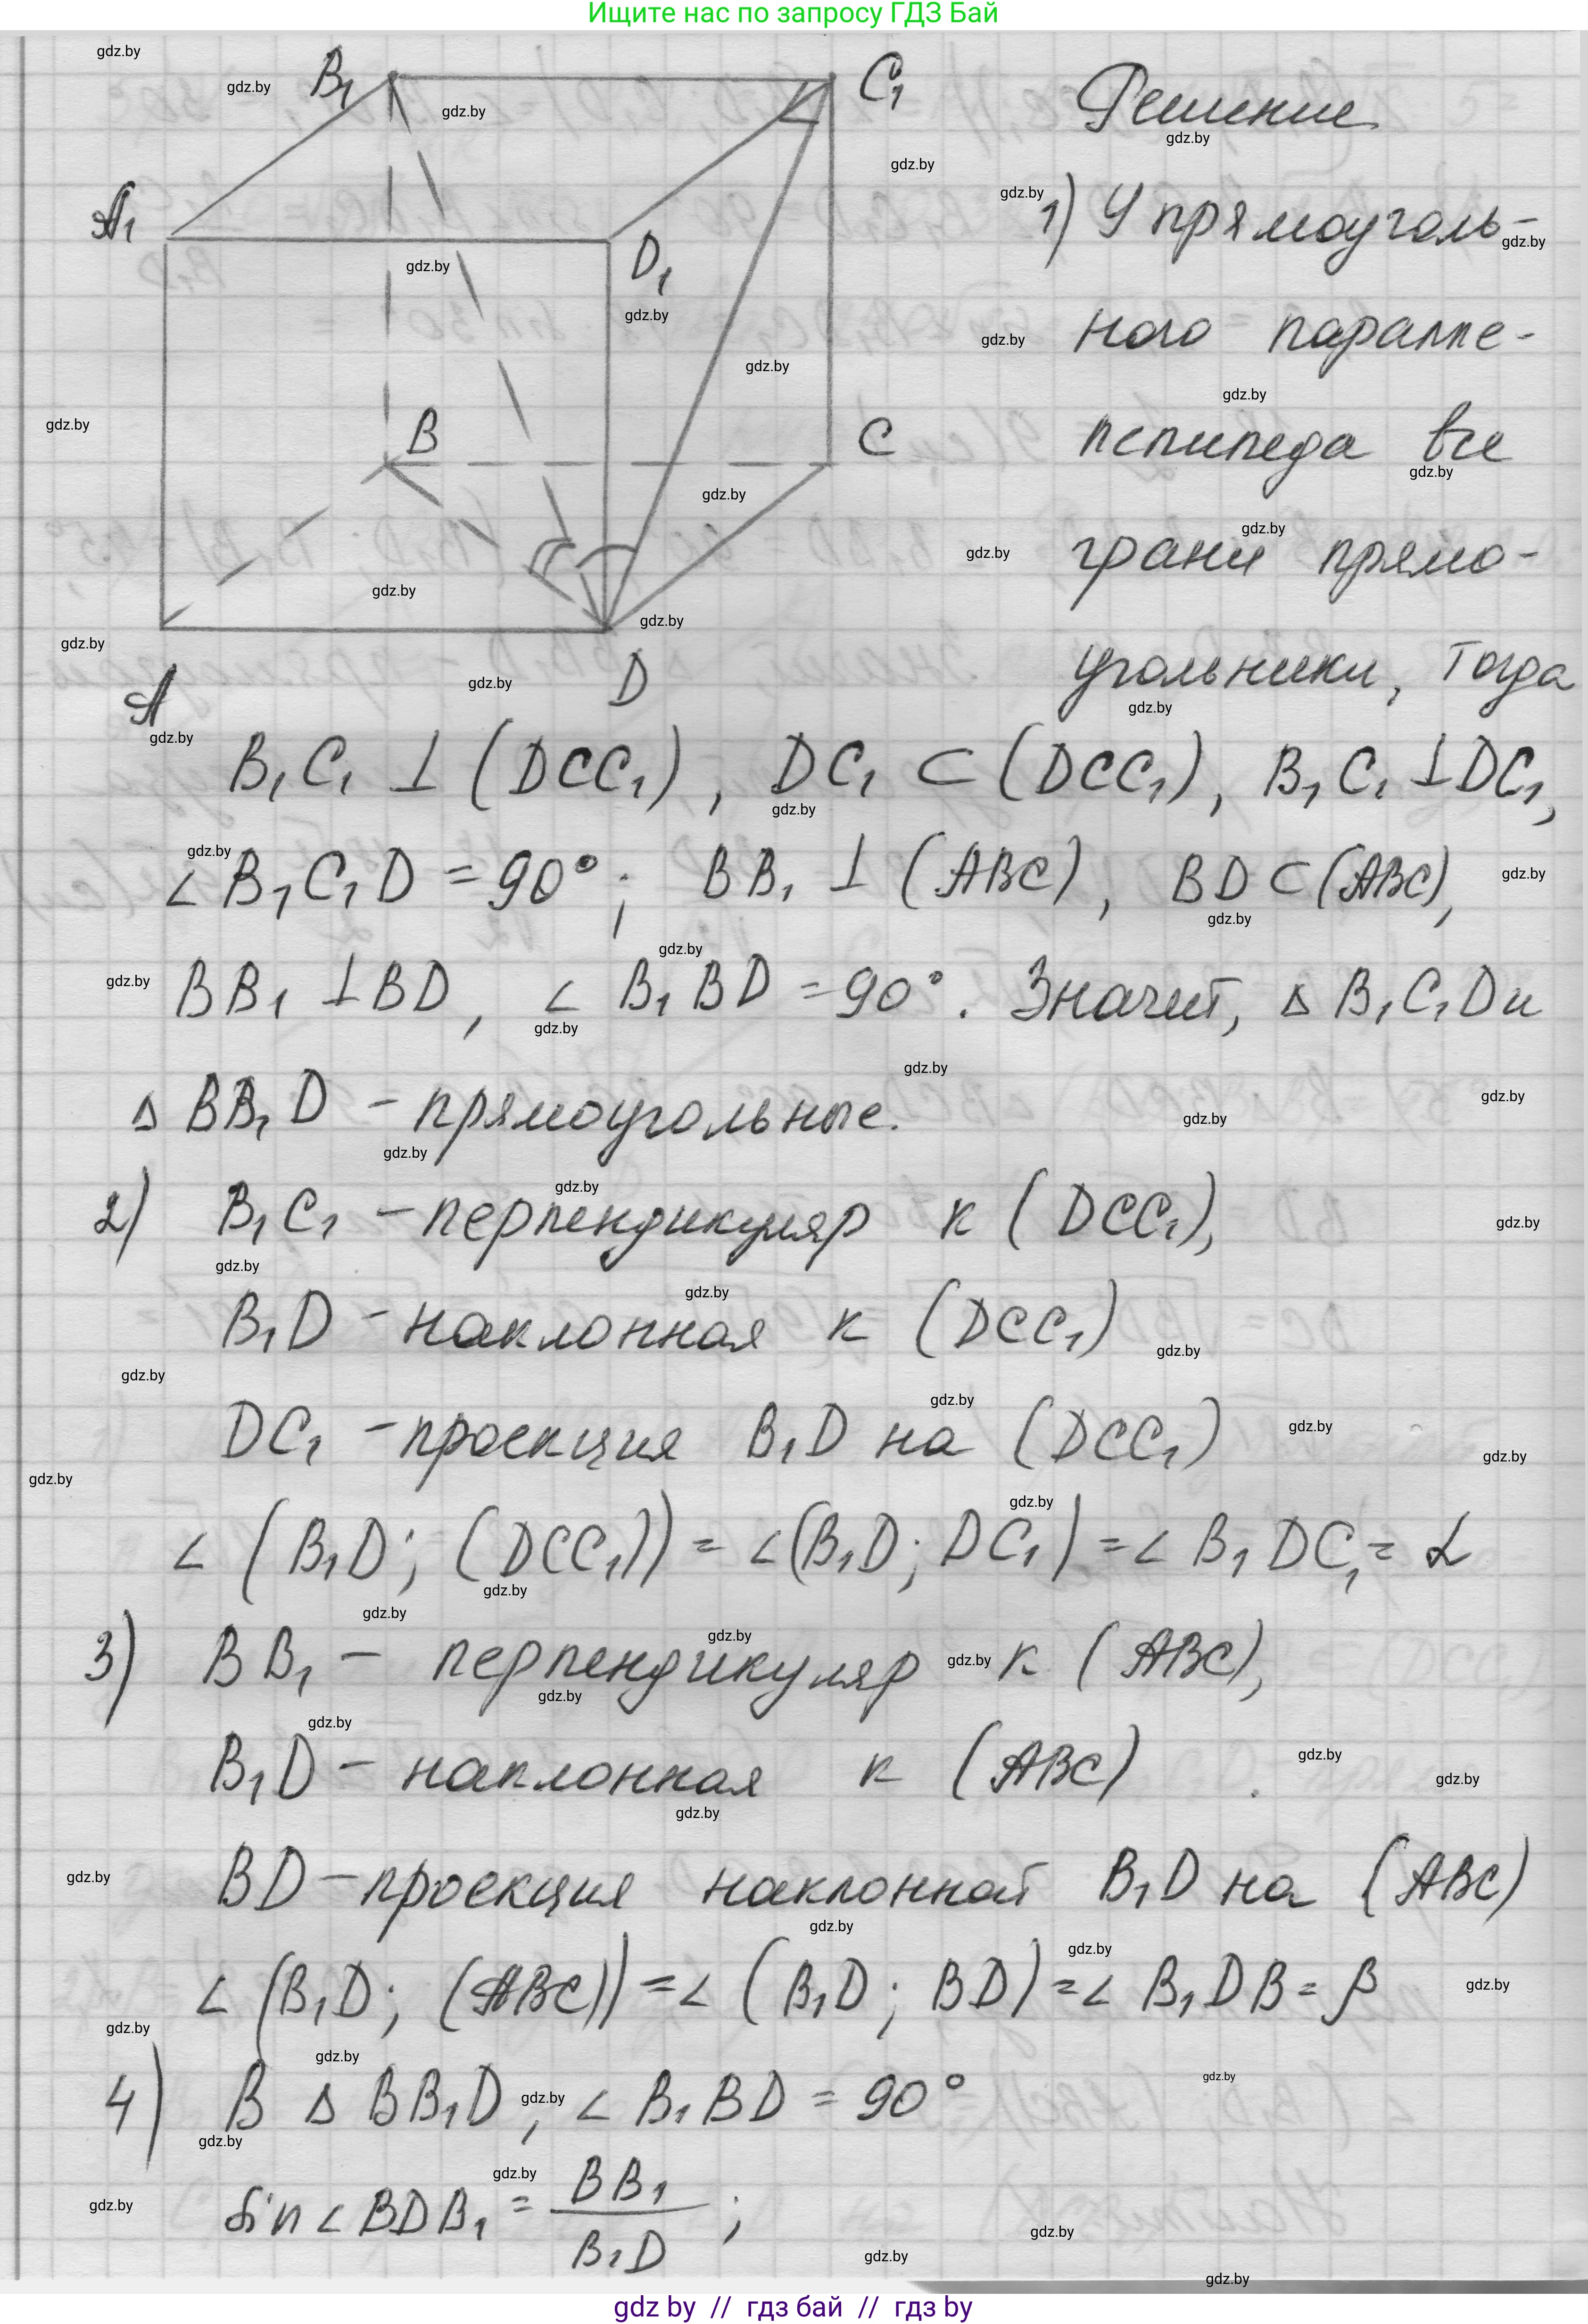 Ищите нас по запросу ГДЗ Бай
B₁
C₁
A₁
D₁
B
C
A
D
Решение
1) У прямоуголь-
ного паралле-
лепипеда все
грани прямо-
угольники, тогда
B₁C₁ ⊥ (DCC₁), DC₁ ⊂ (DCC₁), B₁C₁ ⊥ DC₁,
∠B₁C₁D = 90°; BB₁ ⊥ (ABC), BD ⊂ (ABC),
BB₁ ⊥ BD, ∠ B₁BD = 90°. Значит, △ B₁C₁D и
△ BB₁D – прямоугольные.
2) B₁C₁ – перпендикуляр к (DCC₁),
B₁D – наклонная к (DCC₁)
DC₁ – проекция B₁D на (DCC₁)
∠ (B₁D; (DCC₁)) = ∠(B₁D; DC₁) = ∠ B₁DC₁ = α
3) BB₁ – перпендикуляр к (ABC),
B₁D – наклонная к (ABC)
BD – проекция наклонной B₁D на (ABC)
∠ (B₁D; (ABC)) = ∠ (B₁D; BD) = ∠ B₁DB = β
4) В △ BB₁D, ∠ B₁BD = 90°
sin ∠ BDB₁ = BB₁ / B₁D ;
gdz by // гдз бай // гдз by